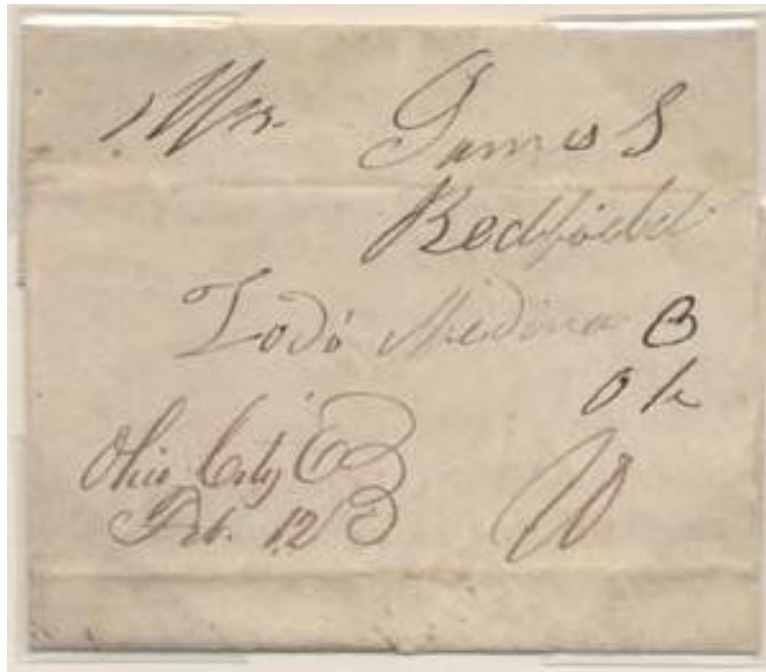 Mr. James S
Redfield
Lodi Medina
Oh
Ohio City
Feb. 12
10